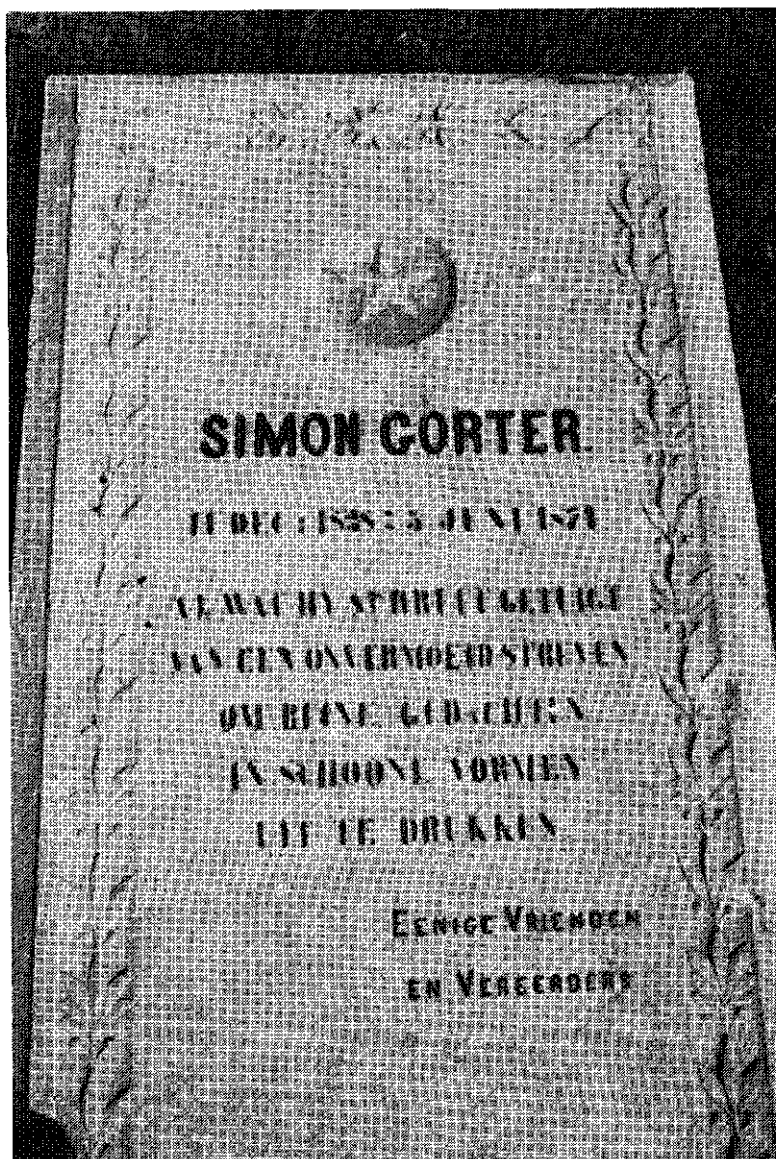 SIMON GORTER.
11 DEC: 1838: 5 JUNI 1871
AL WAT HY SCHREEF GETUIGT
VAN EEN ONVERMOEID STREVEN
OM REINE GEDACHTEN
IN SCHOONE VORMEN
UIT TE DRUKKEN.
EENIGE VRIENDEN
EN VEREERDERS